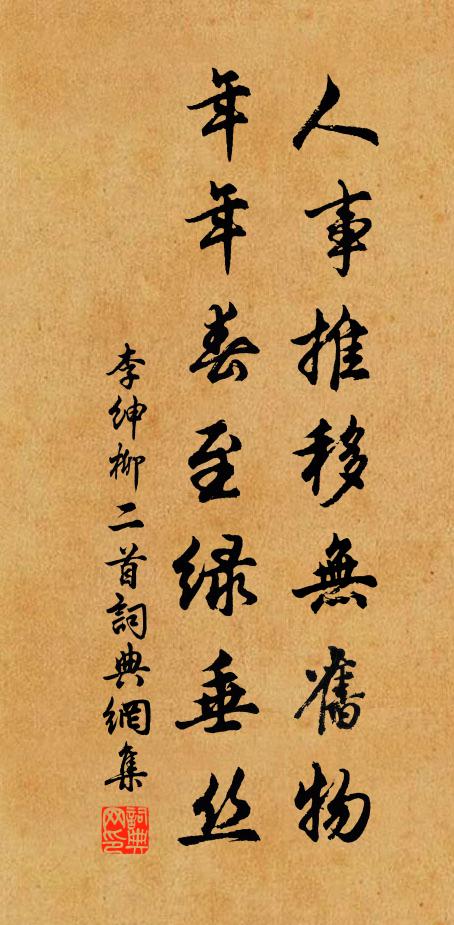 人事推移無舊物
年年春至綠垂丝
李紳柳二首詞典網集
詞典网印